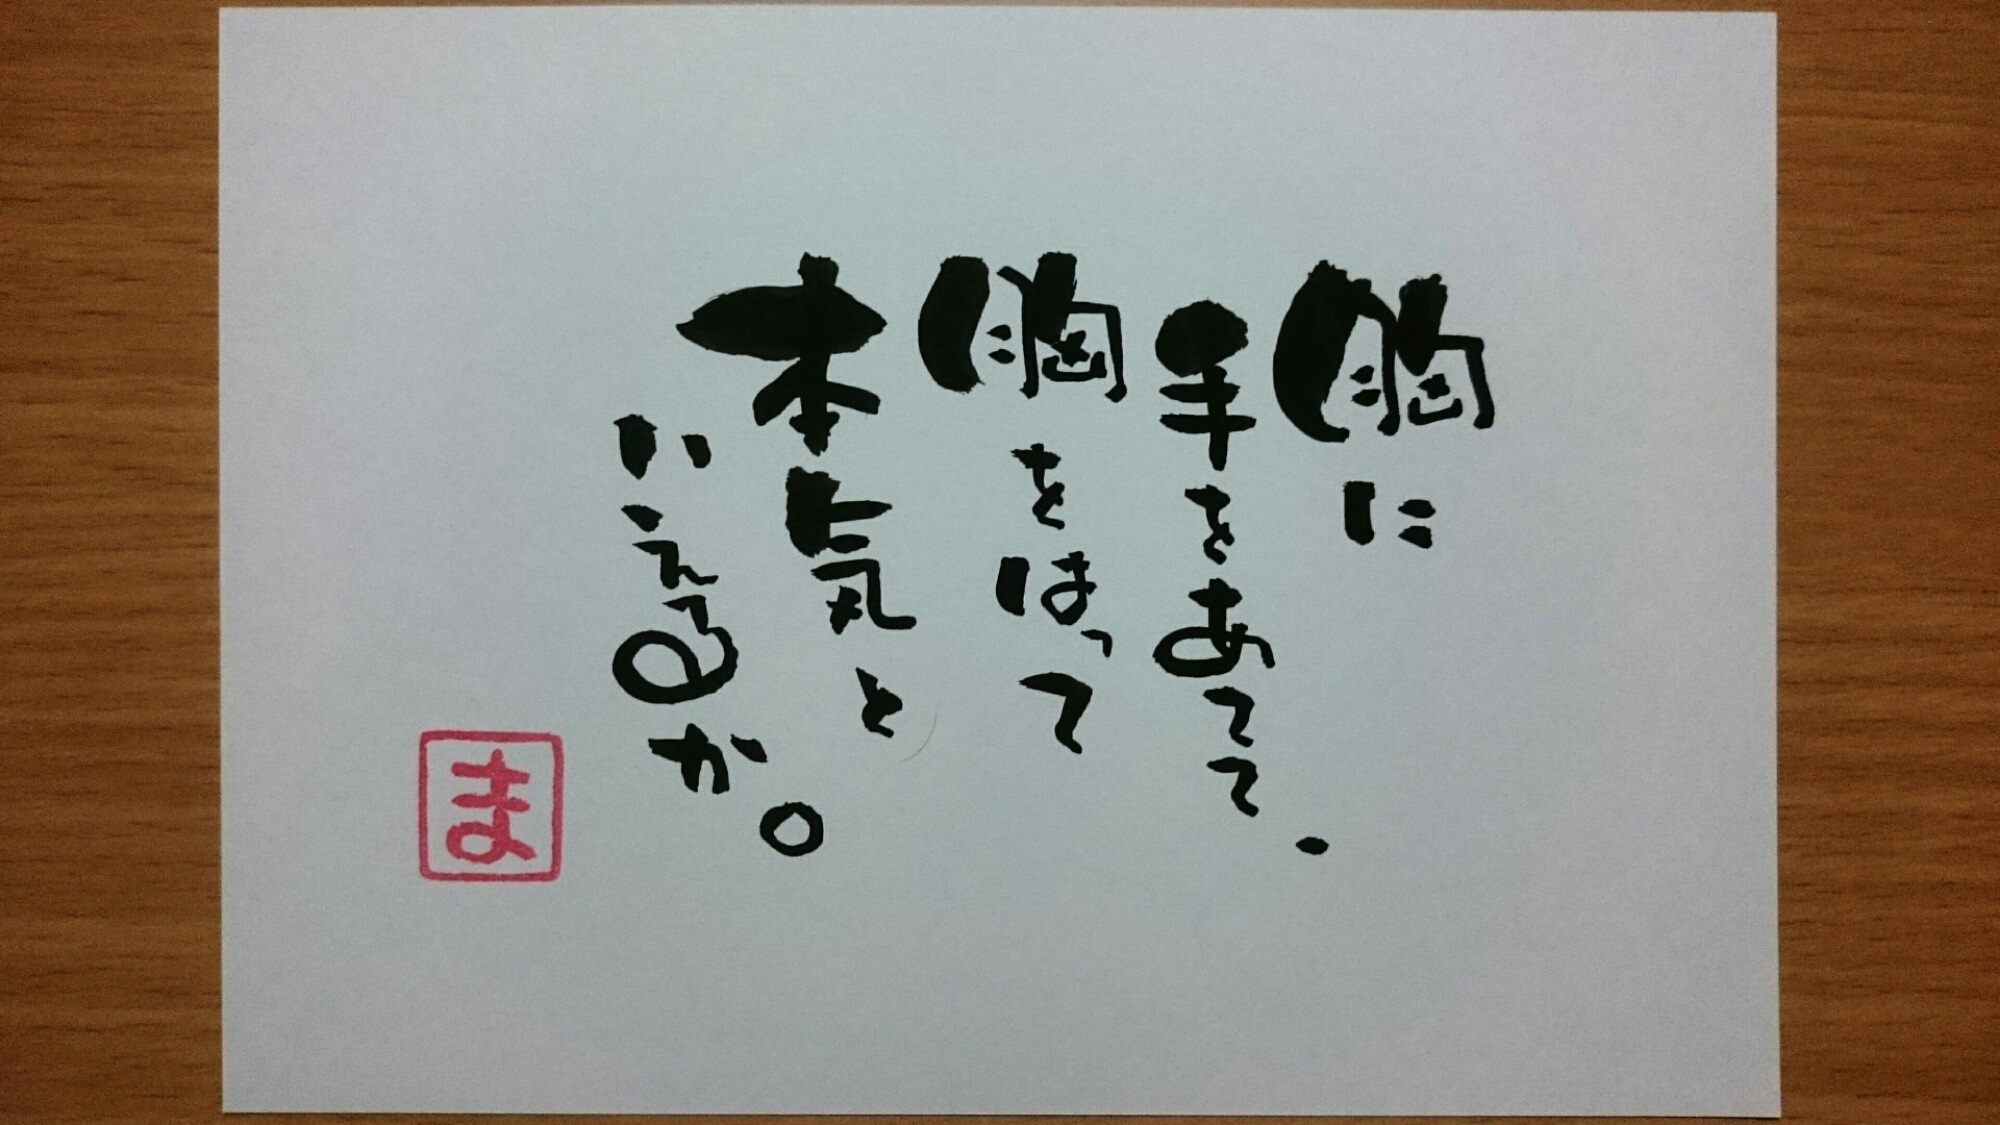 胸に
手をあてて、
胸をはって
本気と
いえるか。
ま